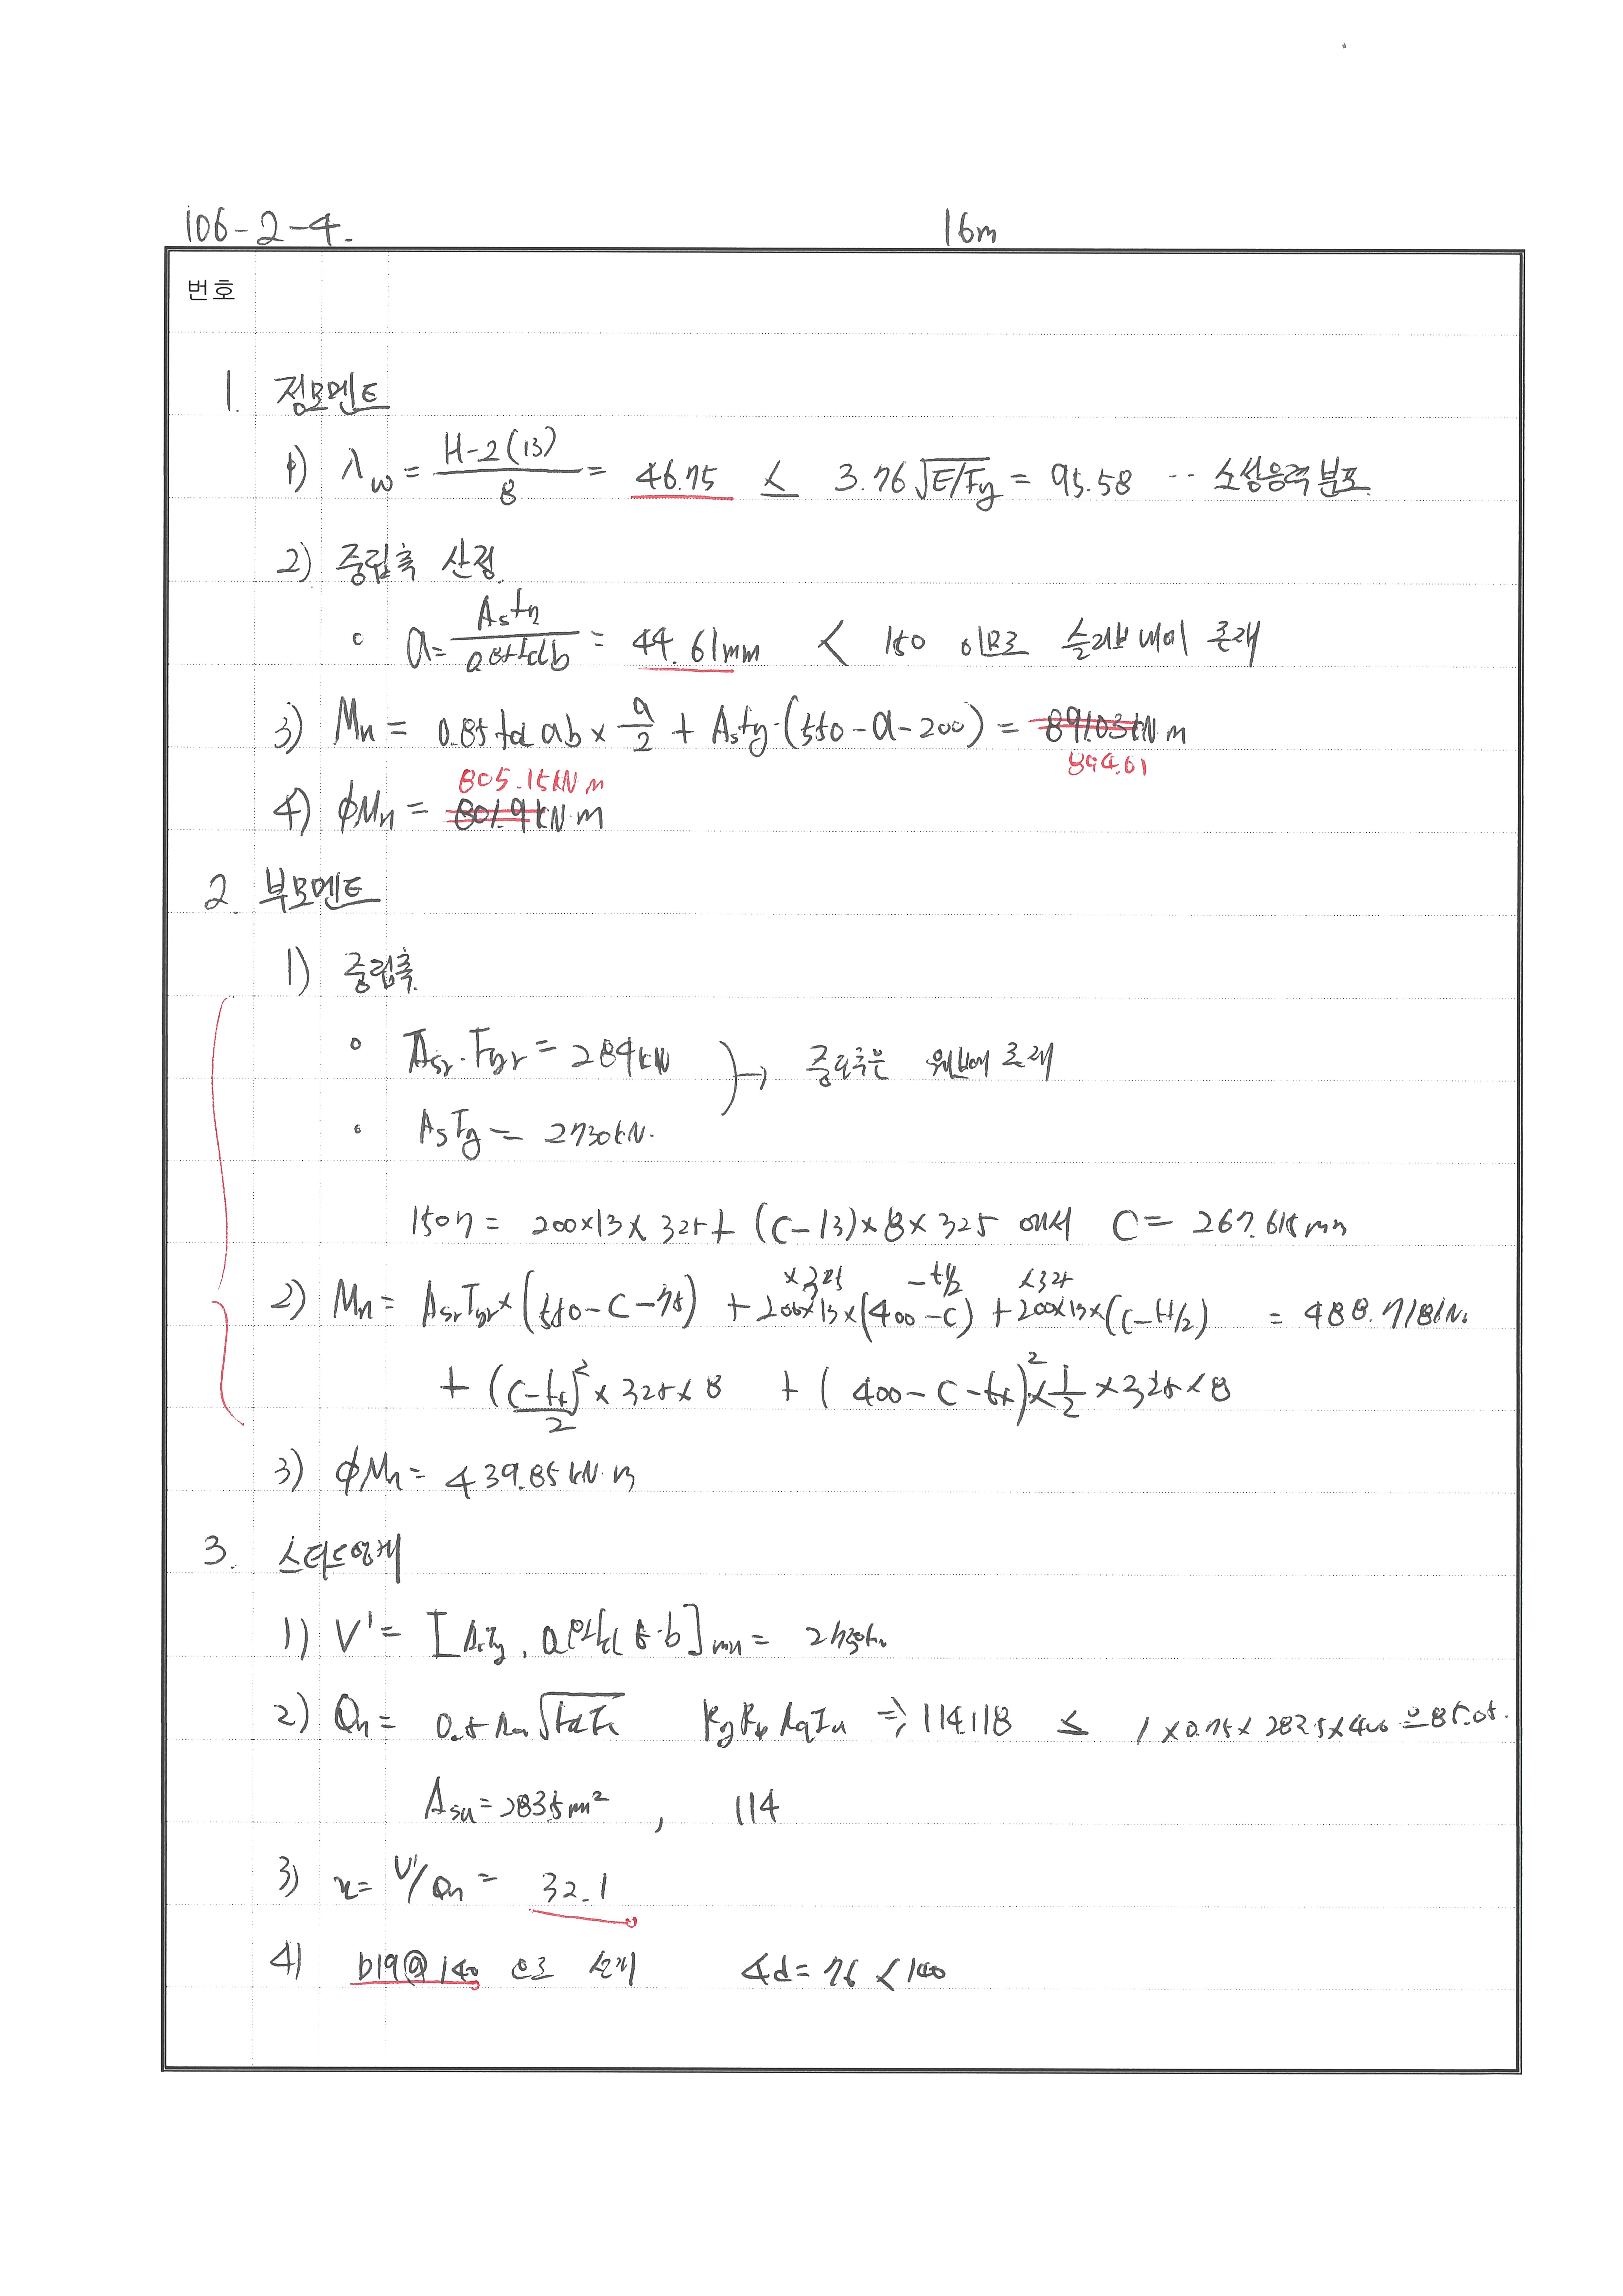 106-2-4.
16m
번호
1. 정모멘트
1) λw = H-2(13) / 8 = 46.75 ≤ 3.76√E/Fy = 95.58 -- 소성응력분포
2) 중립축 산정
∘ a = AsFy / 0.85fck b = 44.61mm < 150 이므로 슬래브 내에 존재
3) Mn = 0.85fck ab × a/2 + AsFy·(550-a-200) = 891.03kN·m
894.61
805.15kN·m
4) φMn = 801.9kN·m
2. 부모멘트
1) 중립축
∘ Asr·Fyr = 284kN → 중립축은 웨브에 존재
∘ AsFy = 2730kN.
1507 = 200×13×325+(C-13)×8×325 에서 C = 267.615mm
×325 -t/2 ×325
2) Mn = AsrFyr×(550-C-75) +200×13×(400-C) +200×13×(C-t/2) = 488.718kN.
+ (C-tf)²/2 ×325×8 + (400-C-tf)²×1/2×325×8
3) φMn = 439.85kN·m
3. 스터드앵커
1) V' = [AsFy, 0.85fck t·b]min = 2730kN
2) Qn = 0.5Asa√fckEc RgRpAsaFu ⇒ 114.118 ≤ 1×0.75×283.5×400 = 85.05.
Asa = 283.5mm² , 114
3) n = V'/Qn = 32.1
4) D19@140 으로 설계 4d = 76 < 140